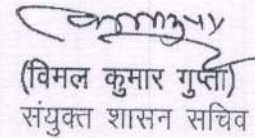 (विमल कुमार गुप्ता)
संयुक्त शासन सचिव